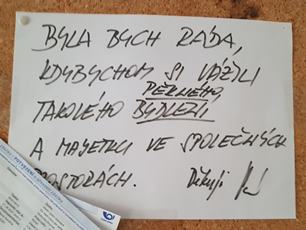 BYLA BYCH RÁDA,
KDYBYCHOM SI VÁŽILI
PĚKNÉHO
TAKOVÉHO BYDLENÍ
A MAJETKU VE SPOLEČNÝCH
PROSTORÁCH. Děkuji